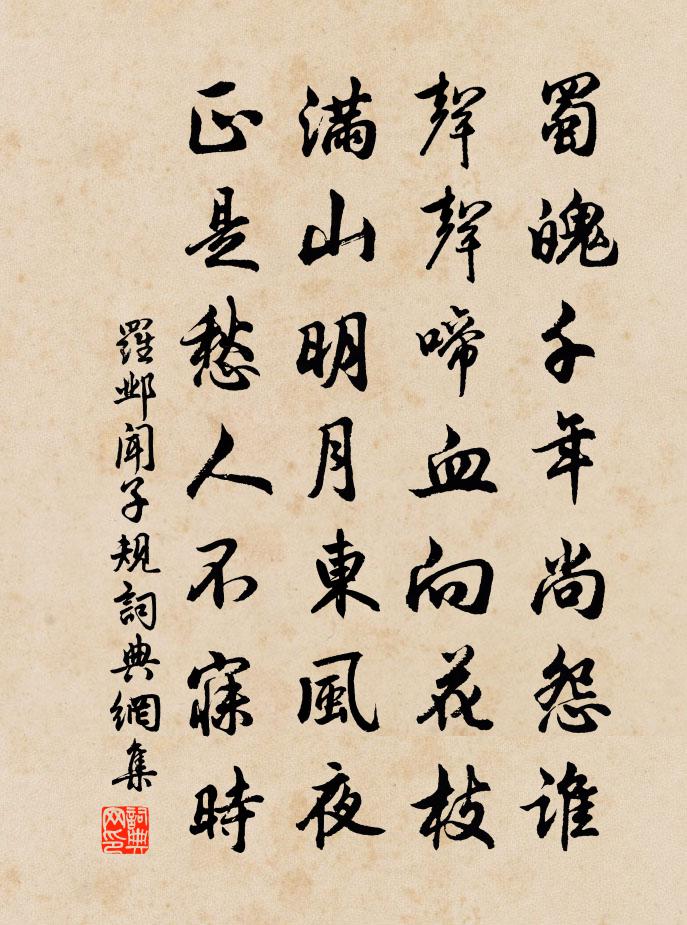 蜀魄千年尚怨誰
聲聲啼血向花枝
滿山明月東風夜
正是愁人不寐時
羅鄴聞子規詞典網集
詞典网印